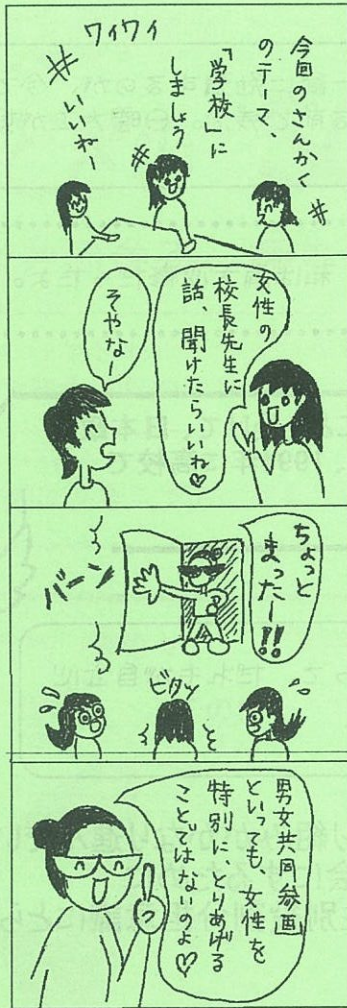 今回のさんかく
のテーマ、
「学校」に
しましょう
ワイワイ
いいねー
女性の
校長先生に
話、聞けたらいいね♡
そやなー
ちょっと
まったー!!
バーン
ピタッ
男女共同参画
といっても、女性を
特別に、とりあげる
ことではないのよ♡